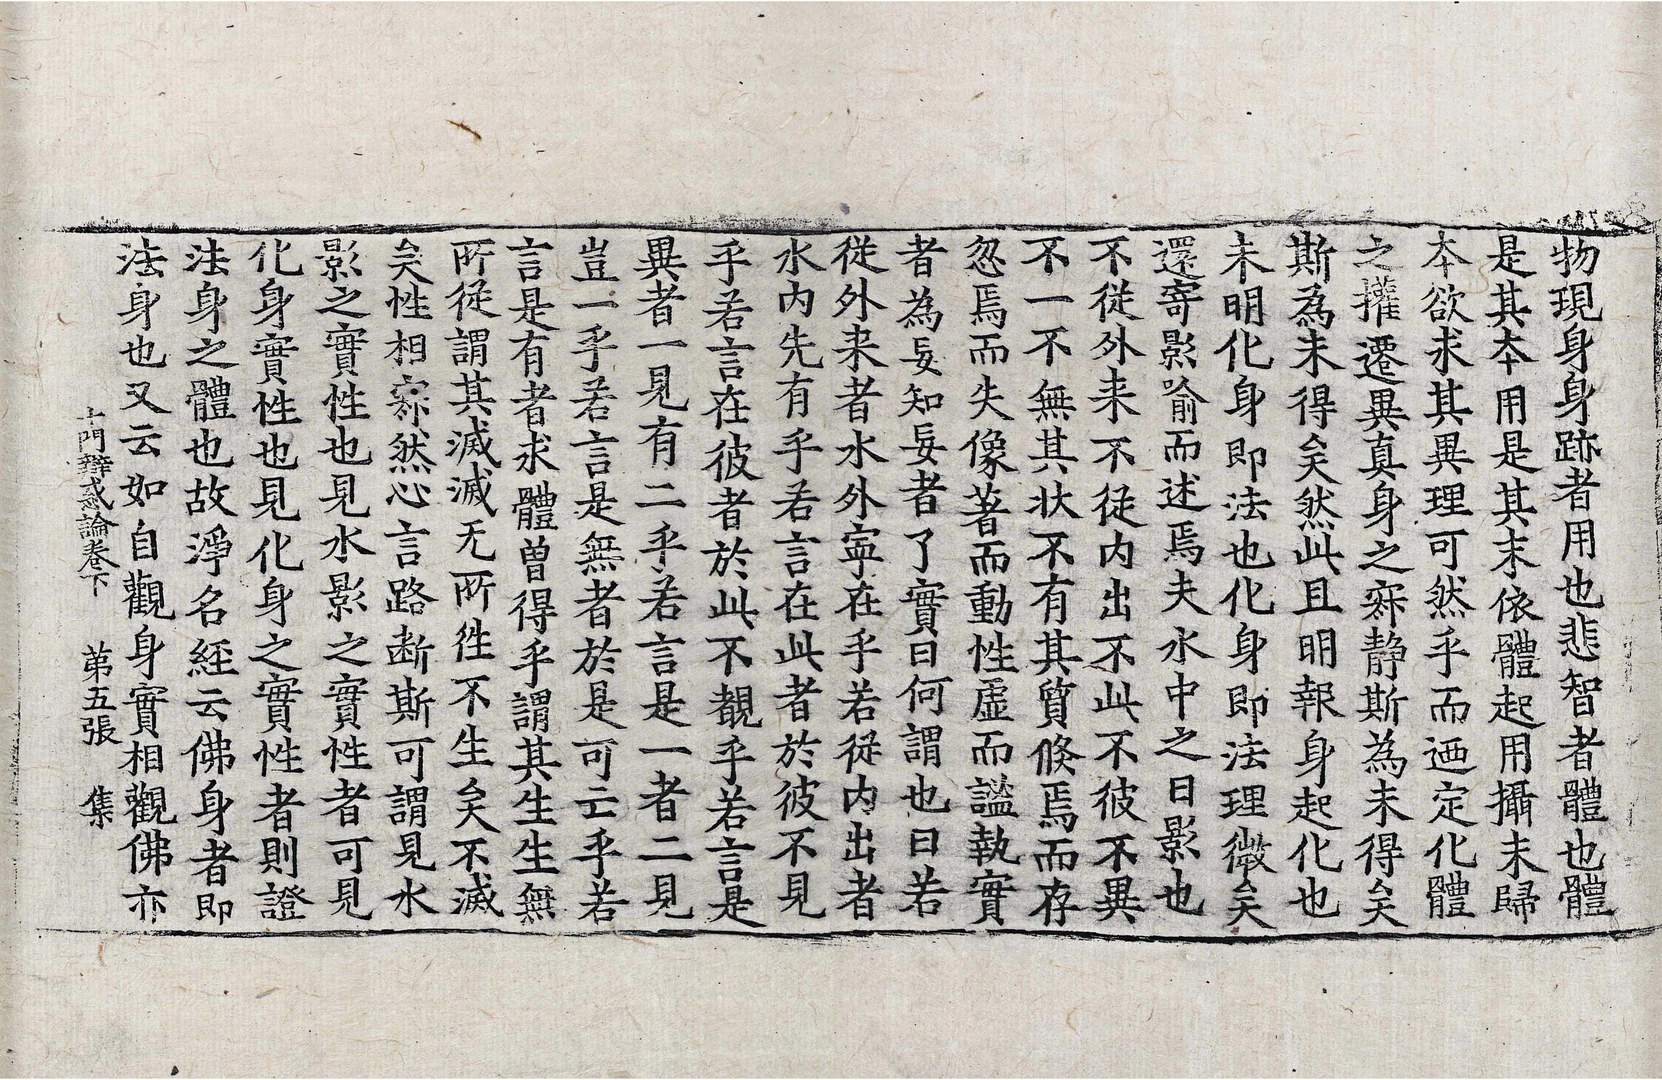 物現身身跡者用也悲智者體也體
是其夲用是其末依體起用攝末歸
夲欲求其異理可然乎而迺定化體
之攉遷異真身之寂静斯為未得矣
斯為未得矣然此且明報身起化也
未明化身即法也化身即法理微矣
還寄影喻而述焉夫水中之日影也
不從外来不從内出不此不彼不異
不一不無其状不有其質倏焉而存
忽焉而失像著而動性虚而謐執實
者為妄知妄者了實曰何謂也曰若
從外来者水外寧在乎若從内出者
水内先有乎若言在此者於彼不見
乎若言在彼者於此不覩乎若言是
異者一見有二乎若言是一者二見
豈一乎若言是無者於是可亡乎若
言是有者求體曽得乎謂其生生無
所從謂其滅滅无所徃不生矣不滅
矣性相寂然心言路断斯可謂見水
影之實性也見水影之實性者可見
化身實性也見化身之實性者則證
法身之體也故淨名經云佛身者即
法身也又云如自觀身實相觀佛亦
十門辯惑論卷下 第五張 集